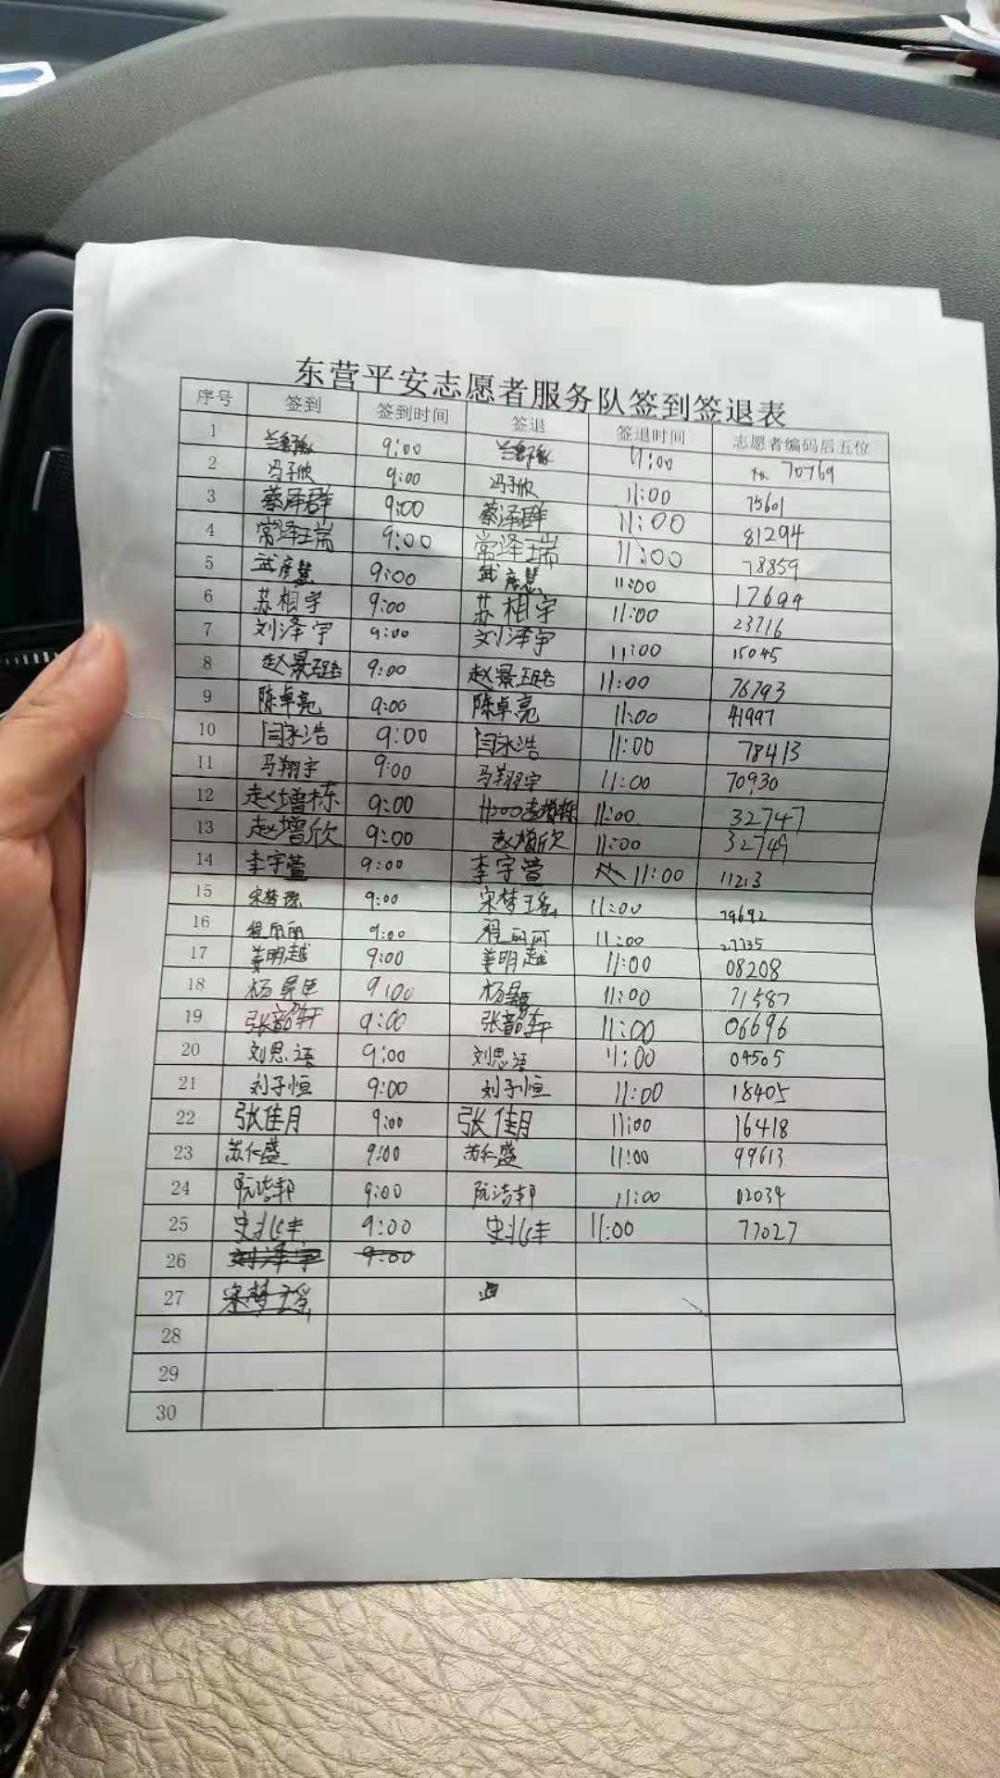 东营平安志愿者服务队签到签退表
序号 签到 签到时间 签退 签退时间 志愿者编码后五位
1 9:00 11:00 70769
2 冯子欣 9:00 冯子欣 11:00 75601
3 蔡泽群 9:00 蔡泽群 11:00 81294
4 常泽瑞 9:00 常泽瑞 11:00 78859
5 武彦慧 9:00 武彦慧 11:00 17694
6 苏相宇 9:00 苏相宇 11:00 23716
7 刘泽宇 9:00 刘泽宇 11:00 15045
8 赵景璐 9:00 赵景璐 11:00 76793
9 陈卓亮 9:00 陈卓亮 11:00 41997
10 闫永浩 9:00 闫永浩 11:00 78413
11 马翔宇 9:00 马翔宇 11:00 70930
12 赵增栋 9:00 11:00 赵增栋 11:00 32747
13 赵增欣 9:00 赵增欣 11:00 32749
14 李宇萱 9:00 李宇萱 11:00 11213
15 宋梦瑶 9:00 宋梦瑶 11:00 79692
16 程丽丽 9:00 程丽丽 11:00 27735
17 姜明越 9:00 姜明越 11:00 08208
18 杨 9:00 杨 11:00 71587
19 张韶轩 9:00 张韶轩 11:00 06696
20 刘思语 9:00 刘思语 11:00 04505
21 刘子恒 9:00 刘子恒 11:00 18405
22 张佳月 9:00 张佳月 11:00 16418
23 苏仁盛 9:00 苏仁盛 11:00 99613
24 阮洁邦 9:00 阮洁邦 11:00 02034
25 史兆丰 9:00 史兆丰 11:00 77027
26 刘泽宇 9:00
27 宋梦瑶
28
29
30